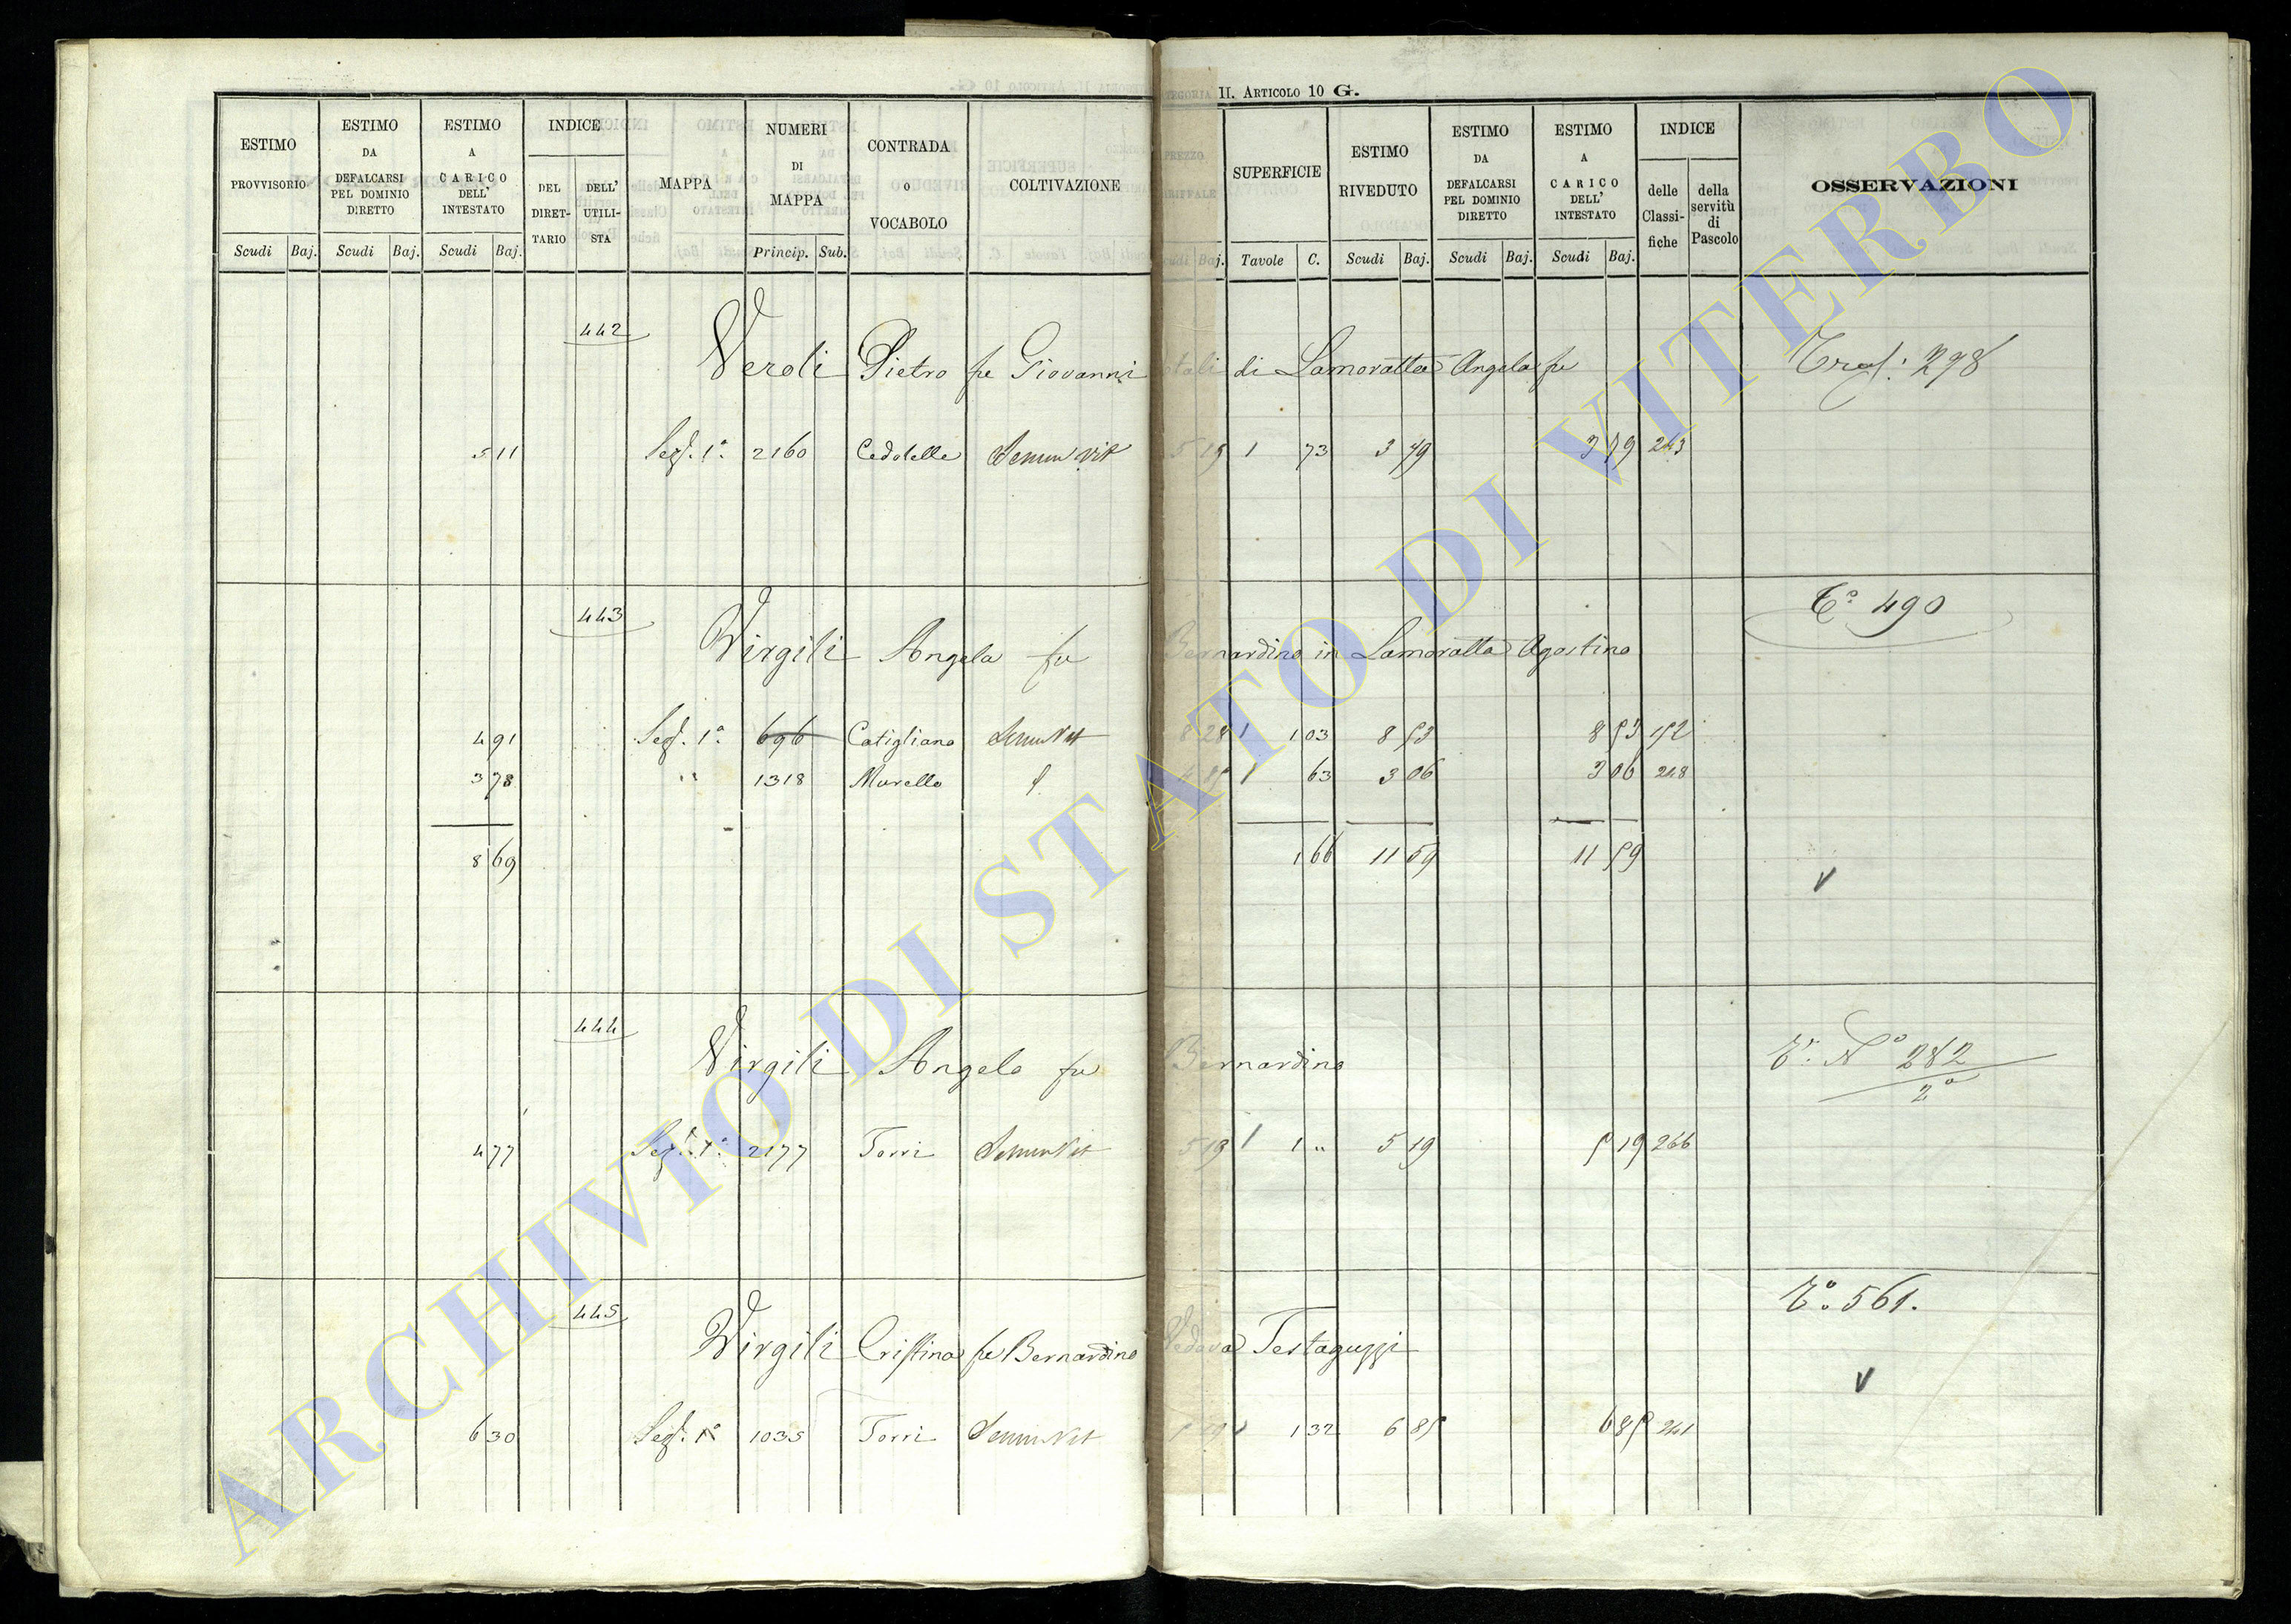 II. Articolo 10 G.
ESTIMO PROVVISORIO Scudi Baj.
ESTIMO DA DEFALCARSI PEL DOMINIO DIRETTO Scudi Baj.
ESTIMO A CARICO DELL' INTESTATO Scudi Baj.
INDICE DEL DIRETTARIO DELL' UTILISTA
MAPPA
NUMERI DI MAPPA Princip. Sub.
CONTRADA O VOCABOLO
COLTIVAZIONE
SUPERFICIE Tavole C.
ESTIMO RIVEDUTO Scudi Baj.
ESTIMO DA DEFALCARSI PEL DOMINIO DIRETTO Scudi Baj.
ESTIMO A CARICO DELL' INTESTATO Scudi Baj.
INDICE delle Classifiche della servitù di Pascolo
OSSERVAZIONI
442
Veroli Pietro fu Giovanni di Lamoratta Angela fu
5 11 Sez. 1a 2160 Cedolelle 1 73 3 79 3 79 243
443 To 490
Virgili Angela fu Bernardino in Lamoratta Agostino
4 91 Sez. 1a 696 Catigliano 8 28 1 1 03 8 53 8 53 192
3 78 " 1318 Morello 1 63 3 06 3 06 248
8 69 1 66 11 59 11 59
V
444 No 282
2o
Virgili Angelo fu Bernardino
4 77 Sez. 1a 2177 Torri 5 19 1 1 " 5 19 5 19 266
445 To 561.
Virgili Cristina fu Bernardino Vedova Testaguzzi
V
6 30 Sez. 1a 1035 Torri 1 32 6 85 6 85 241
ARCHIVIO DI STATO DI VITERBO